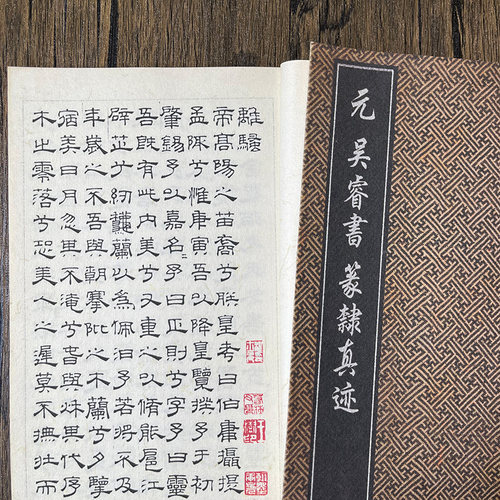 離騷
帝高陽之苗裔兮朕皇考曰伯庸攝提
孟陬兮惟庚寅吾以降皇覽揆予于初
肇錫予以嘉名予曰正則兮字予曰靈
吾既有此内美兮又重之以脩能扈江
辟芷兮紉龝蘭以為佩汩予若將不及
年歲之不吾與朝搴阰之木蘭兮夕擥
宿莽日月忽其不淹兮春與秌其代序
木之零落兮恐美人之遲莫不撫壯而
元 吴睿書 篆隸真迹